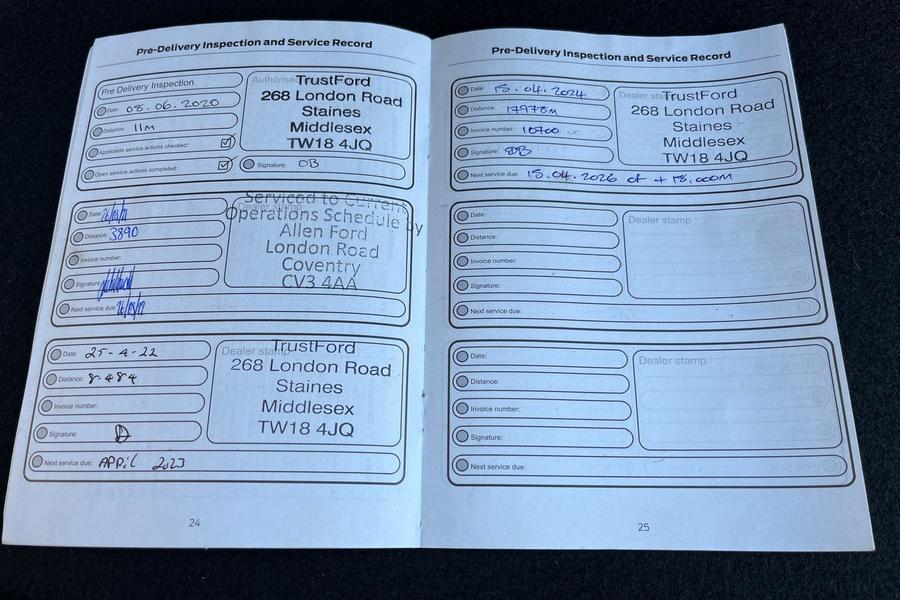 Pre-Delivery Inspection and Service Record
Pre Delivery Inspection
Date: 08.06.2020
Distance: 11m
Applicable service actions checked:
Open service actions completed:
Authorise
TrustFord
268 London Road
Staines
Middlesex
TW18 4JQ
Signature: DB
Date:
Distance: 3890
Invoice number:
Signature:
Next service due:
Dealer stamp
Serviced to Current
Operations Schedule by
Allen Ford
London Road
Coventry
CV3 4AA
Date: 25-4-22
Distance: 8-484
Invoice number:
Signature:
Next service due: APPil 2023
Dealer stamp
TrustFord
268 London Road
Staines
Middlesex
TW18 4JQ
24
Pre-Delivery Inspection and Service Record
Date: 15.04.2024
Distance: 17978m
Invoice number:
Signature: DB
Next service due: 15.04.2026 or +18,000m
Dealer sta
TrustFord
268 London Road
Staines
Middlesex
TW18 4JQ
Date:
Distance:
Invoice number:
Signature:
Next service due:
Dealer stamp
Date:
Distance:
Invoice number:
Signature:
Next service due:
Dealer stamp
25